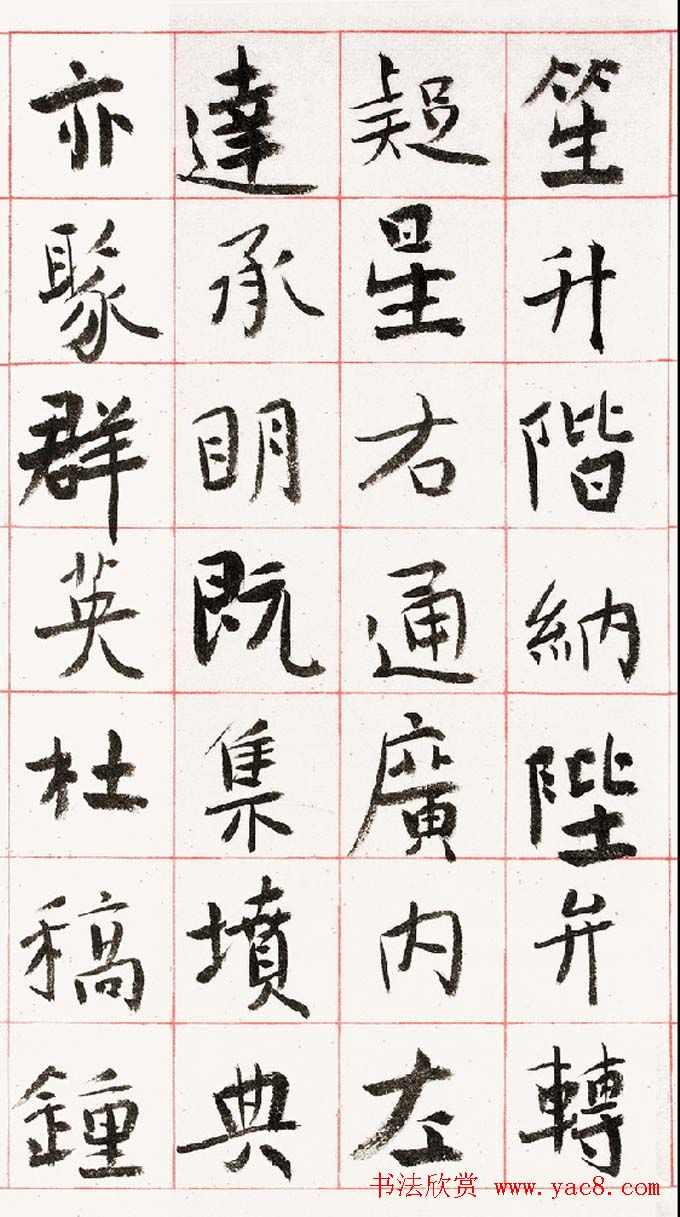 笙升階納陛弁轉
疑星右通廣内左
達承明既集墳典
亦聚群英杜稿鍾
书法欣赏 www.yac8.com